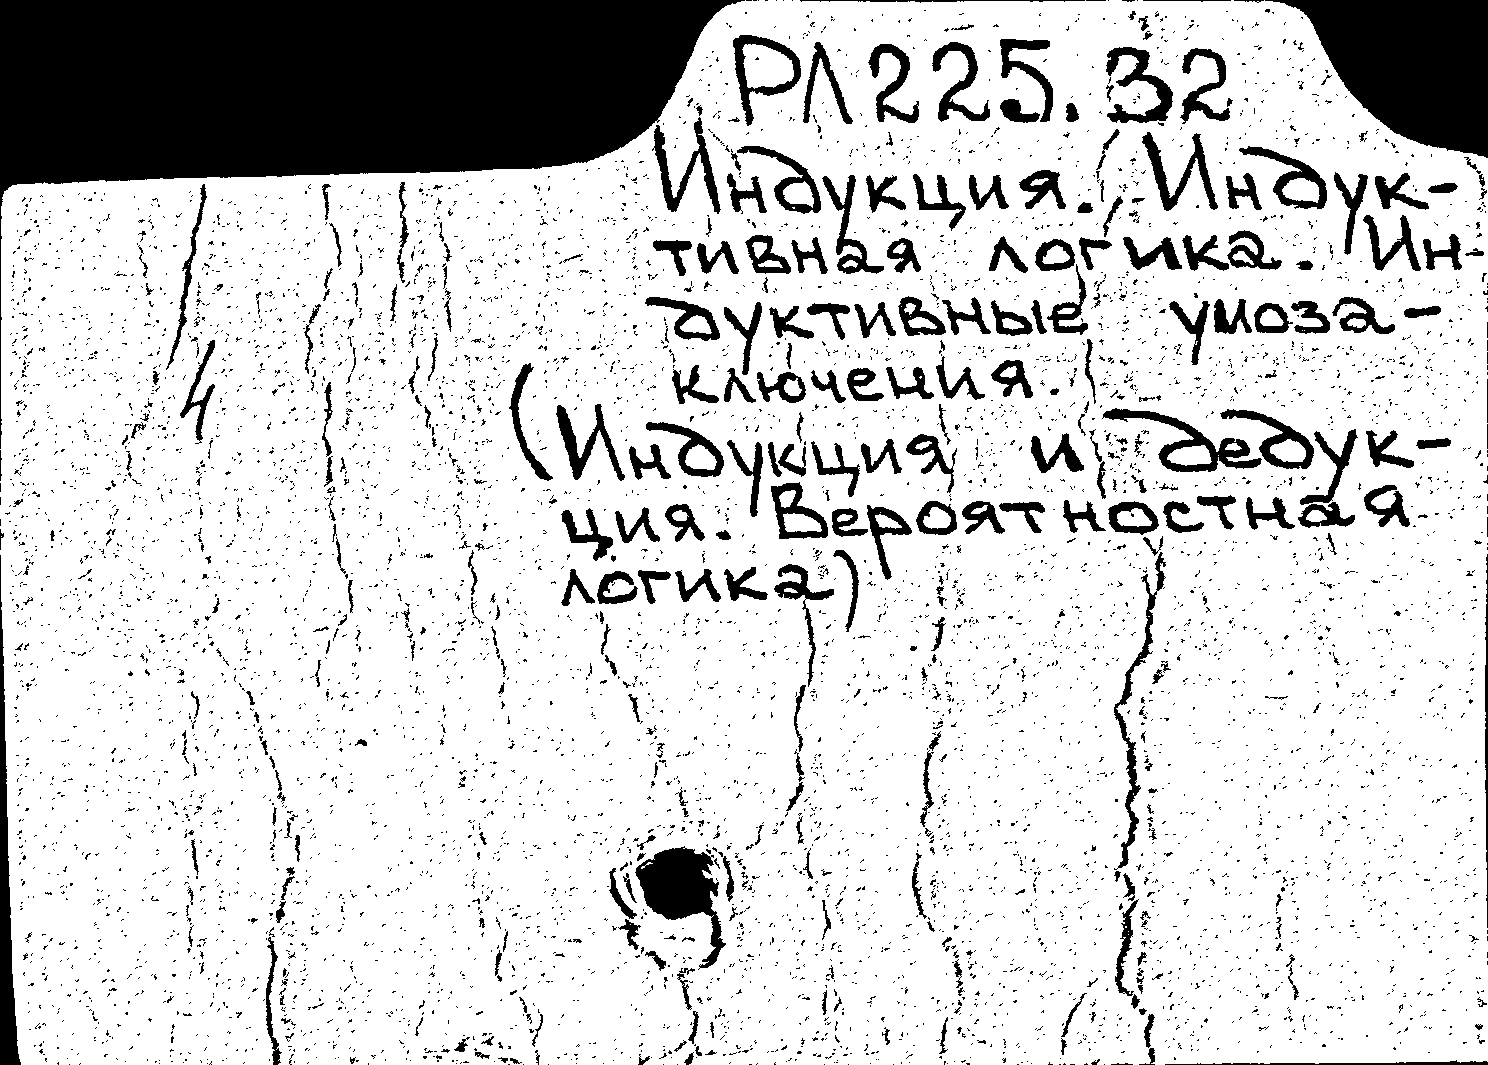 РЛ225.32
Индукция. Индук-
тивная логика. Ин-
дуктивные умоза-
ключения.
4
(Индукция и дедук-
ция. Вероятностная
логика)